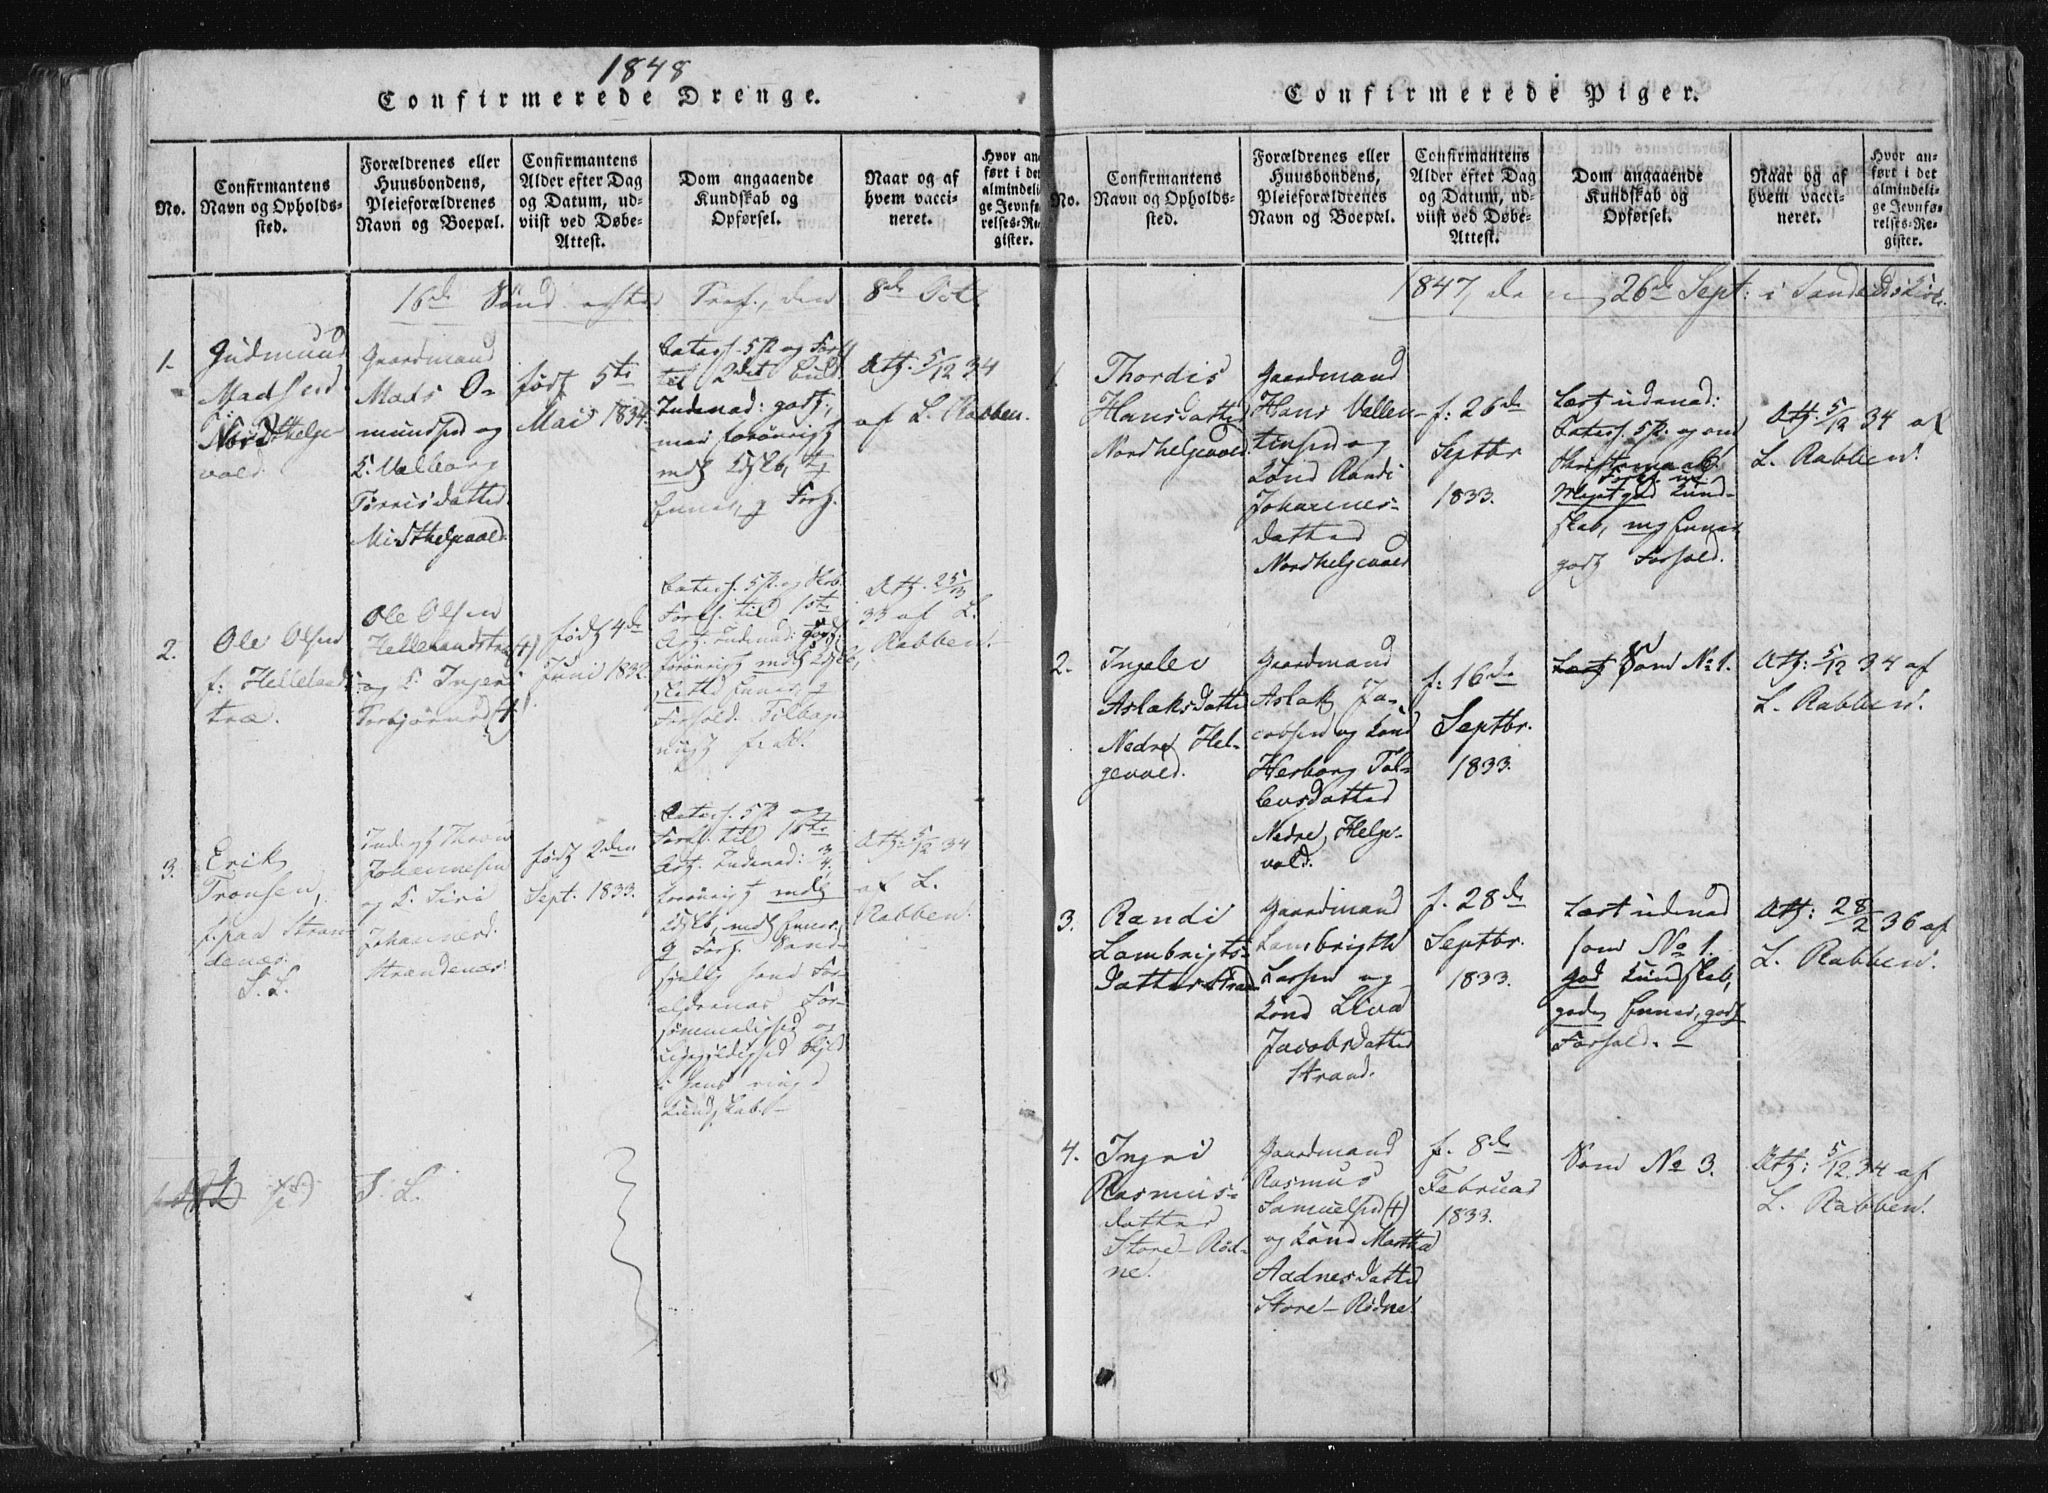 1848
Confirmerede Drenge.
No.
Confirmantens
Navn og Opholds-
sted.
Forældrenes eller
Huusbondens,
Pleieforældrenes
Navn og Boepæl.
Confirmantens
Alder efter Dag
og Datum, ud-
viist ved Døbe-
Attest.
Dom angaaende
Kundskab og
Opførsel.
Naar og af
hvem vacci-
neret.
Hvor an-
ført i det
almindeli-
ge Jevnfø-
relses-Re-
gister.
16de Sønd. efter Tref., den 8de Oct.
1.
Gudmund
Madsen
Nordhelge-
vold.
Gaardmand
Mads O-
mundsen og
K. Valborg
Tørrisdatter
Midthelgevold.
født 5te
Mai 1834.
til 2det
Att. 5/12 34
af L. Rabben.
2.
Ole Olsen
f. Helleland-
træ.
Ole Olsen
Hellelandstræ (+)
og K. Ingeri
Torbjørnsd. (+)
født 4de
Juni 1832.
Forhold.
Att. 25/3
33 af L.
Rabben.
3.
Erik
Tronsen,
f. paa Stran-
denæs.
S. L.
Inderst Thron
Johannesen
og K. Siri
Johannesd.
Strandenæs.
født 2den
Sept. 1833.
Forældrenes For-
sømmelighed og
Ligegyldighed Skyld
i hans ringe
Kundskab.
Att. 5/12 34
af L.
Rabben.
S. L.
Confirmerede Piger.
No.
Confirmantens
Navn og Opholds-
sted.
Forældrenes eller
Huusbondens,
Pleieforældrenes
Navn og Boepæl.
Confirmantens
Alder efter Dag
og Datum, ud-
viist ved Døbe-
Attest.
Dom angaaende
Kundskab og
Opførsel.
Naar og af
hvem vacci-
neret.
Hvor an-
ført i det
almindeli-
ge Jevnfø-
relses-Re-
gister.
1847, den 26de Sept: i
1.
Thordis
Hansdatter
Nordhelgevold.
Gaardmand
Hans Vallen-
tinsen og
Kone Randi
Johannes-
datter
Nordhelgevold
f: 26de
Septbr
1833.
Læst udenad:
Meget god Kund-
skab,
godt Forhold.
Att: 5/12 34 af
L. Rabben.
2.
Ingelev
Aslaksdatter
Nedre Hel-
gevold.
Gaardmand
Aslak Ja-
cobsen og Kone
Herborg Tol-
levsdatter
Nedre Helge-
vold.
f: 16de
Septbr.
1833.
Som No 1.
Att: 5/12 34 af
L. Rabben.
3.
Randi
Lambrigts-
datter Strand
Gaardmand
Lambrigth
Larsen og
Kone Liva
Jacobsdatter
Strand.
f. 28de
Septbr.
1833.
Læst udenad
som No 1.
God Kundskab,
gode Evner, godt
Forhold. –
Att: 28/2 36 af
L. Rabben.
4.
Ingri
Rasmus-
datter
Store-Rød-
ne.
Gaardmand
Rasmus
Samuelsen (+)
og Kone Martha
Aadnesdatter
Store-Rødne.
f. 8de
Februar
1833.
Som No 3.
Att: 5/12 34 af
L. Rabben.